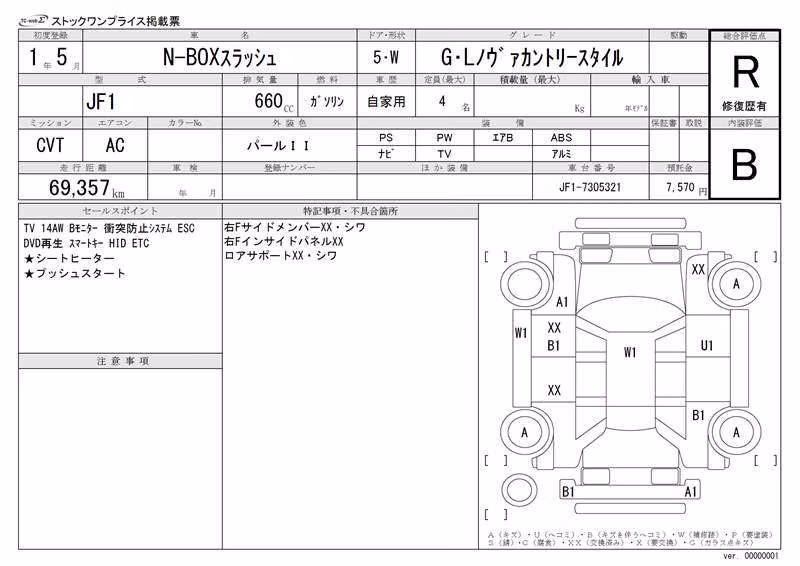 TC-webΣ ストックワンプライス掲載票
初度登録 車名 ドア・形状 グレード 駆動 総合評価点
1年 5月 N-BOXスラッシュ 5・W G・Lノヴァカントリースタイル R
修復歴有
型式 排気量 燃料 車歴 定員(最大) 積載量(最大) 輸入車
JF1 660CC ガソリン 自家用 4名 Kg 年モデル
ミッション エアコン カラーNo. 外装色 装備 保証書 取説 内装評価
CVT AC パールII PS PW エアB ABS B
ナビ TV アルミ
走行距離 車検 登録ナンバー ほか装備 車台番号 預託金
69,357km 年 月 JF1-7305321 7,570円
セールスポイント
TV 14AW Bモニター 衝突防止システム ESC
DVD再生 スマートキー HID ETC
★シートヒーター
★プッシュスタート
注意事項
特記事項・不具合箇所
右FサイドメンバーXX・シワ
右FインサイドパネルXX
ロアサポートXX・シワ
[ ] [ ]
XX
A
A1
W1 XX
B1 W1 U1
XX
B1
A A
[ ] [ ]
B1 A1
[ ]
A(キズ)・U(ヘコミ)・B(キズを伴うヘコミ)・W(補修跡)・P(要塗装)
S(錆)・C(腐食)・XX(交換済み)・X(要交換)・G(ガラス点キズ)
ver. 00000001